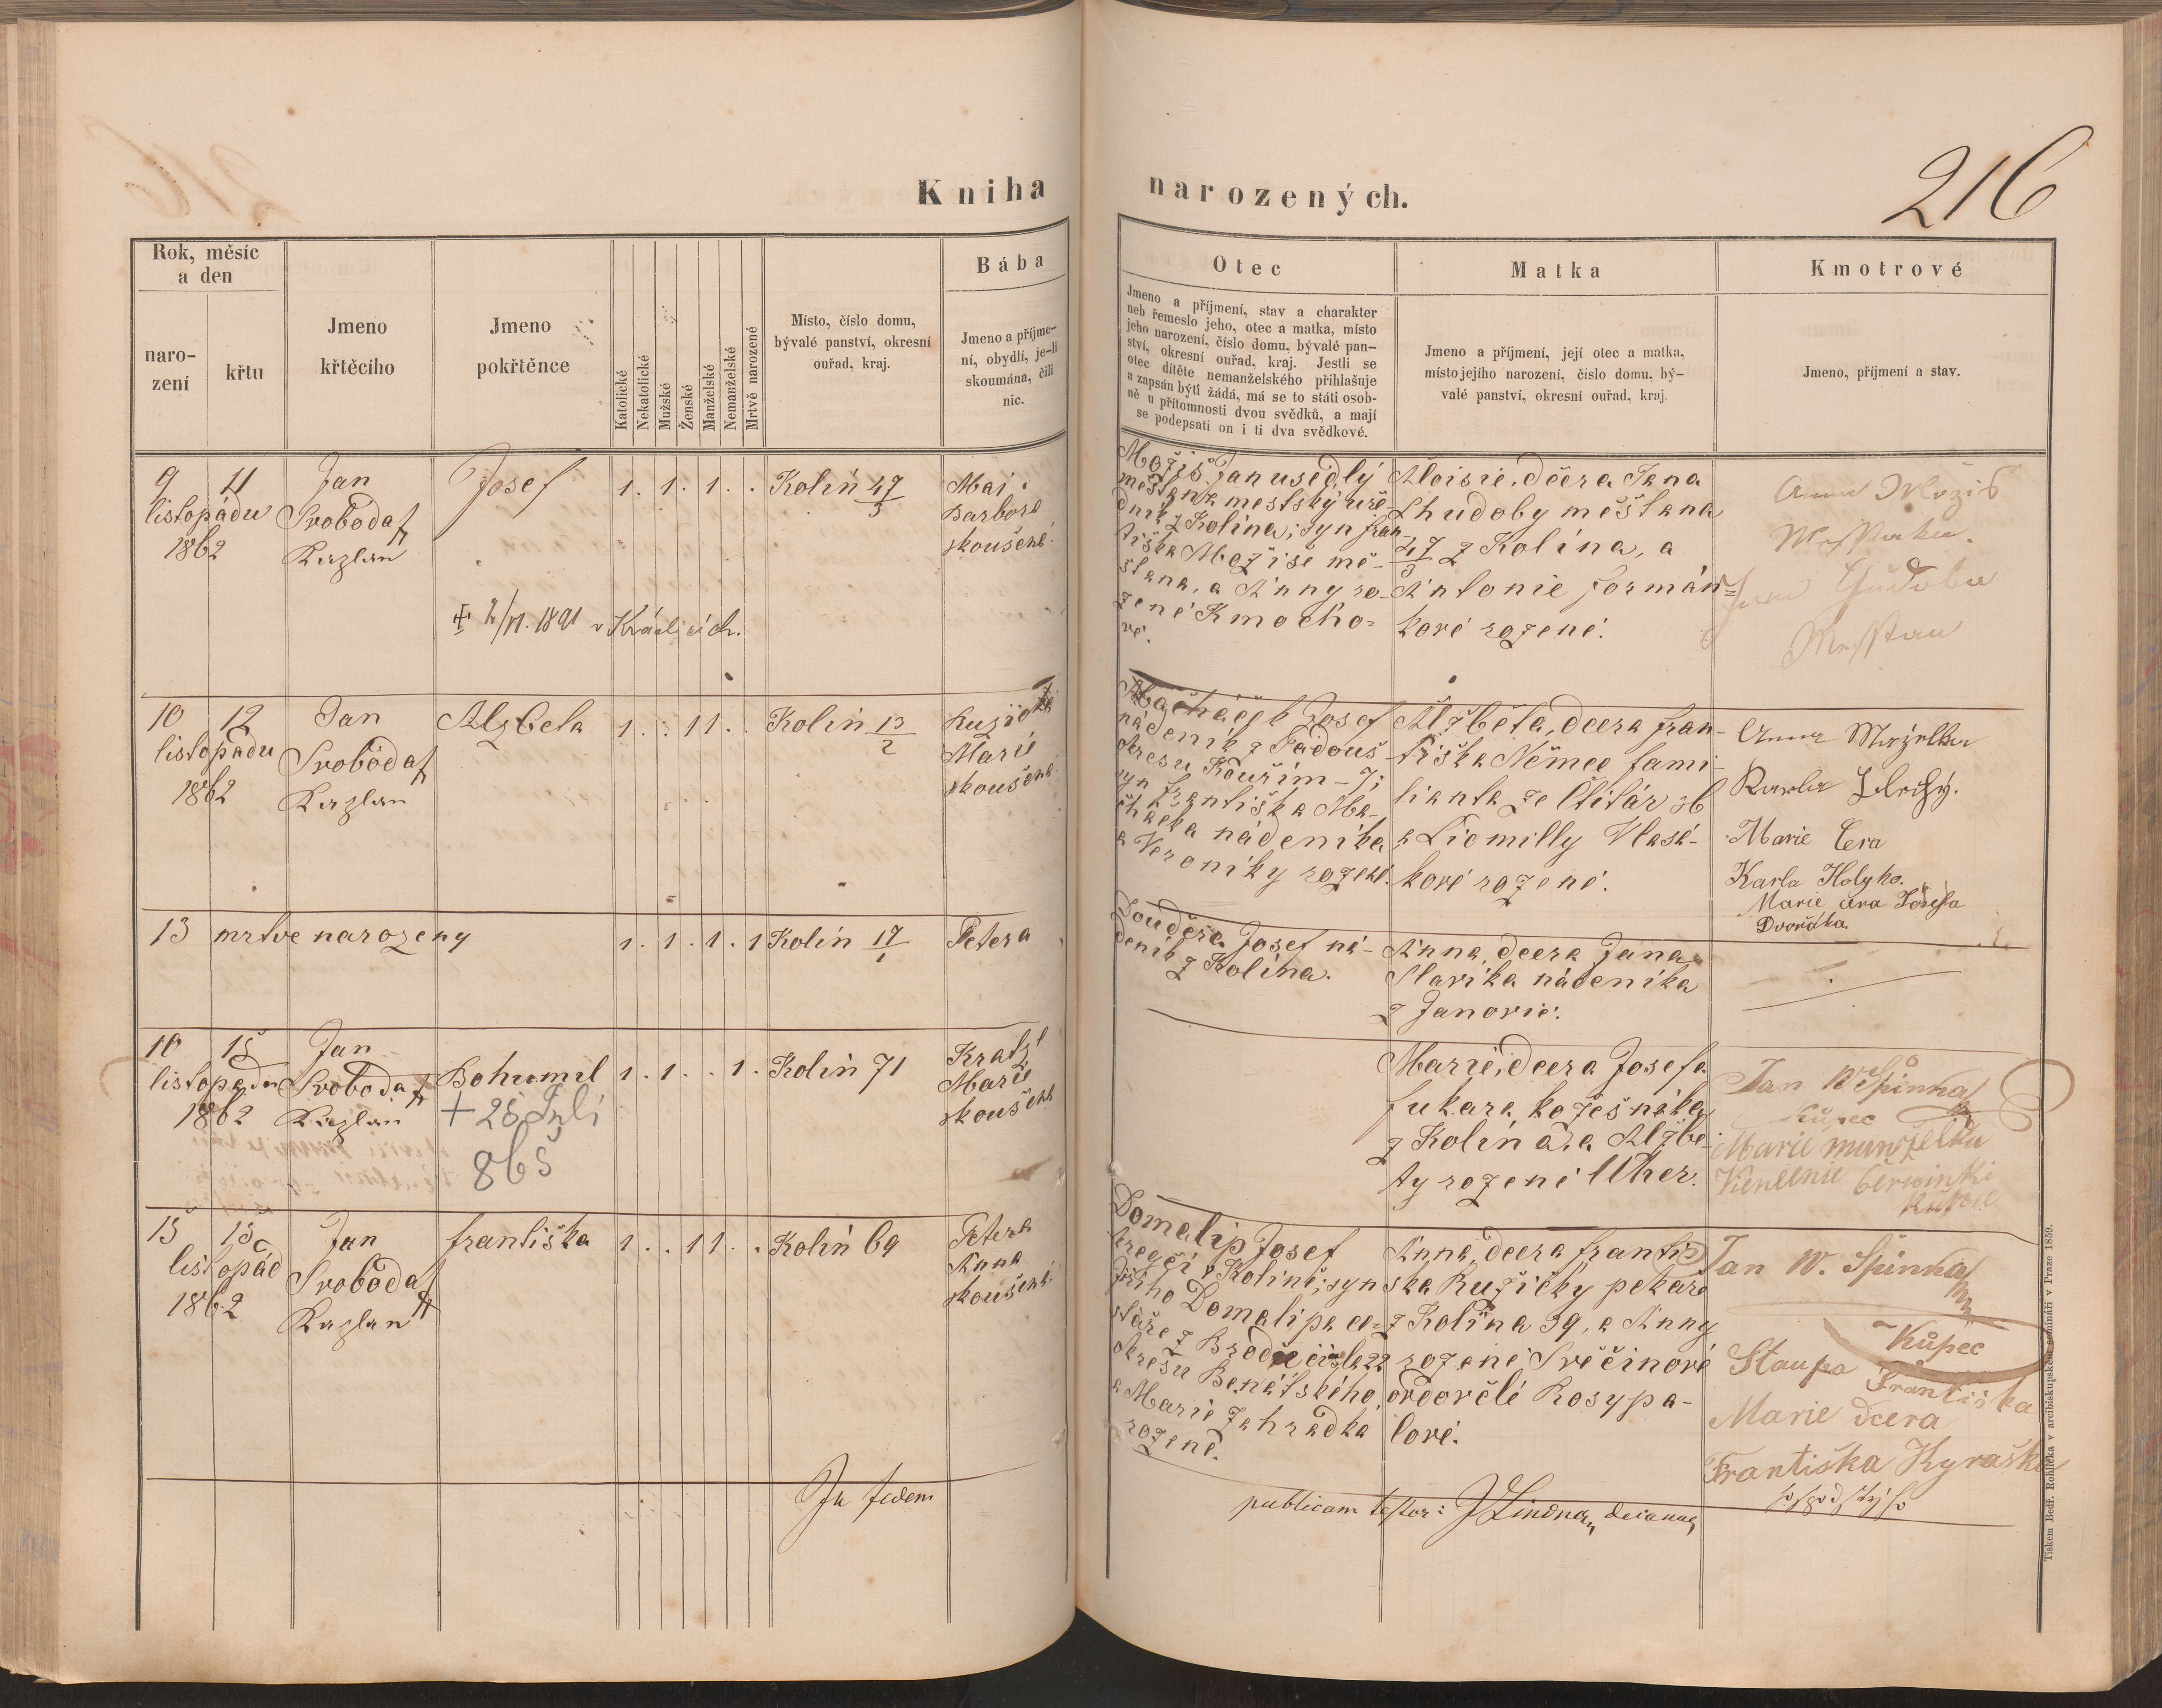 216
Kniha narozených.
Rok, měsíc
a den
naro-
zení
křtu
Jmeno
křtěcího
Jmeno
pokřtěnce
Katolické
Nekatolické
Mužské
Ženské
Manželské
Nemanželské
Mrtvě narozené
Místo, číslo domu,
bývalé panství, okresní
ouřad, kraj.
Bába
Jmeno a příjme-
ní, obydlí, je-li
skoumána, čili
nic.
Otec
Jmeno a příjmení, stav a charakter
neb řemeslo jeho, otec a matka, místo
jeho narození, číslo domu, bývalé pan-
ství, okresní ouřad, kraj. Jestli se
otec dítěte nemanželského přihlašuje
a zapsán býti žádá, má se to státi osob-
ně u přítomnosti dvou svědků, a mají
se podepsati on i ti dva svědkové.
Matka
Jmeno a příjmení, její otec a matka,
místo jejího narození, číslo domu, bý-
valé panství, okresní ouřad, kraj.
Kmotrové
Jmeno, příjmení a stav.
9 11
listopádu
1862
Jan
Svoboda
Kaplan
Josef
1. 1. 1. .
Kolín 47/3
Mai
Barbora
skoušená.
+ 2/VI. 1891 v Králicích.
Možiš Jan usedlý
mešťan a mestský uře-
dník z Kolína; syn fran-
tiška Možiše mě-
šťana, a Anny ro-
zené Kmocho-
vé.
Aloisie, dcera Jana
Chudoby měšťana
47/3 z Kolína, a
Antonie formán-
kové rozené.
Anna Možiš
Jan Chudoba
10 12
listopadu
1862
Jan
Svoboda
Kaplan
Alzbeta
1. . 1 1. .
Kolín 13/2
Ružička
Marie
skoušená.
Macháček Josef
nádeník z
okresu Kouřím - 7;
syn františka Ma-
cháčka nádeníka
a Veroniky rozené
Alžběta, dcera fran-
tiška Němec fami-
lianta ze Štítár 36
a Lidmilly Vlasá-
kové rozené.
Anna
Karla
Marie Cera
Karla Holyho.
Marie cera Josefa
Dvořáka.
13 mrtve narozeny
1. 1. 1. 1
Kolín 17/1
Petera
Douděra Josef ná-
deník z Kolína.
Anna, dcera Jana
Slavíka nádeníka
z Janovic.
10 15
listopadu
1862
Jan
Svoboda
Kaplan
Bohumil
+ 28 Juli
865
1. 1. . 1.
Kolín 71
Kratzl
Marie
skoušená
Marie, dcera Josefa
fukara, kožešníka
z Kolína, a Alžbe-
ty rozené Uher.
Jan W Špinka
Kupec
Marie
15 15
listopád
1862
Jan
Svoboda
Kaplan
františka
1. . 1 1. .
Kolín 69
Petera
Anna
skoušená.
Domalip Josef
kregčí v Kolíně; syn
Jiřího Domalipa
z Brodu čísla 22
okresu Benátského,
a Marie Zahradka
rozené.
Anna, dcera františ
ska Ružičky pekaře
z Kolína 39, a Anny
rozené Svěčinové
ovdovělé Rosypa-
lové.
Jan W. Špinka
Kůpec
Staupa Františka
Marie dcera
Františka Kyraška
In fidem
publicam testor: J Lindna, decanus
Tiskem Bedř. Rohlíčka v arcibiskupském semináři v Praze 1859.